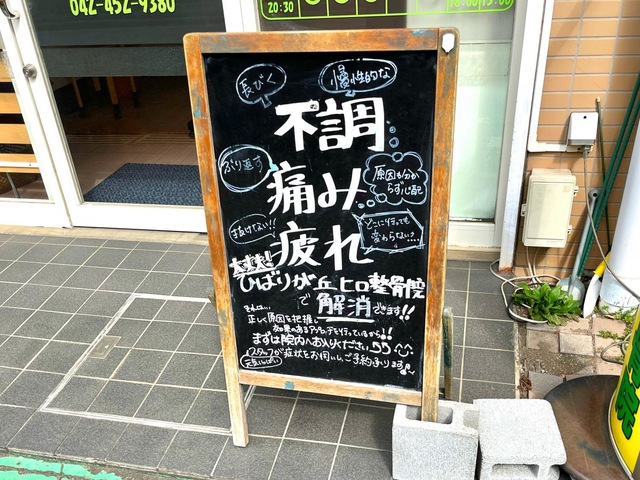 042-452-9380
20:30
長びく
慢性的な
不調
ぶり返す
痛み
原因も分か
らず心配
抜けない!!
どこに行っても
変わらない…?
疲れ
大丈夫!!
ひばりが丘ヒロ整骨院
で解消できます!!
それは…
正しく原因を把握し
効果のあるアプローチを行っているから!!
まずは院内へお入りください
スタッフが症状をお伺いし、ご予約承ります
元気いっぱい